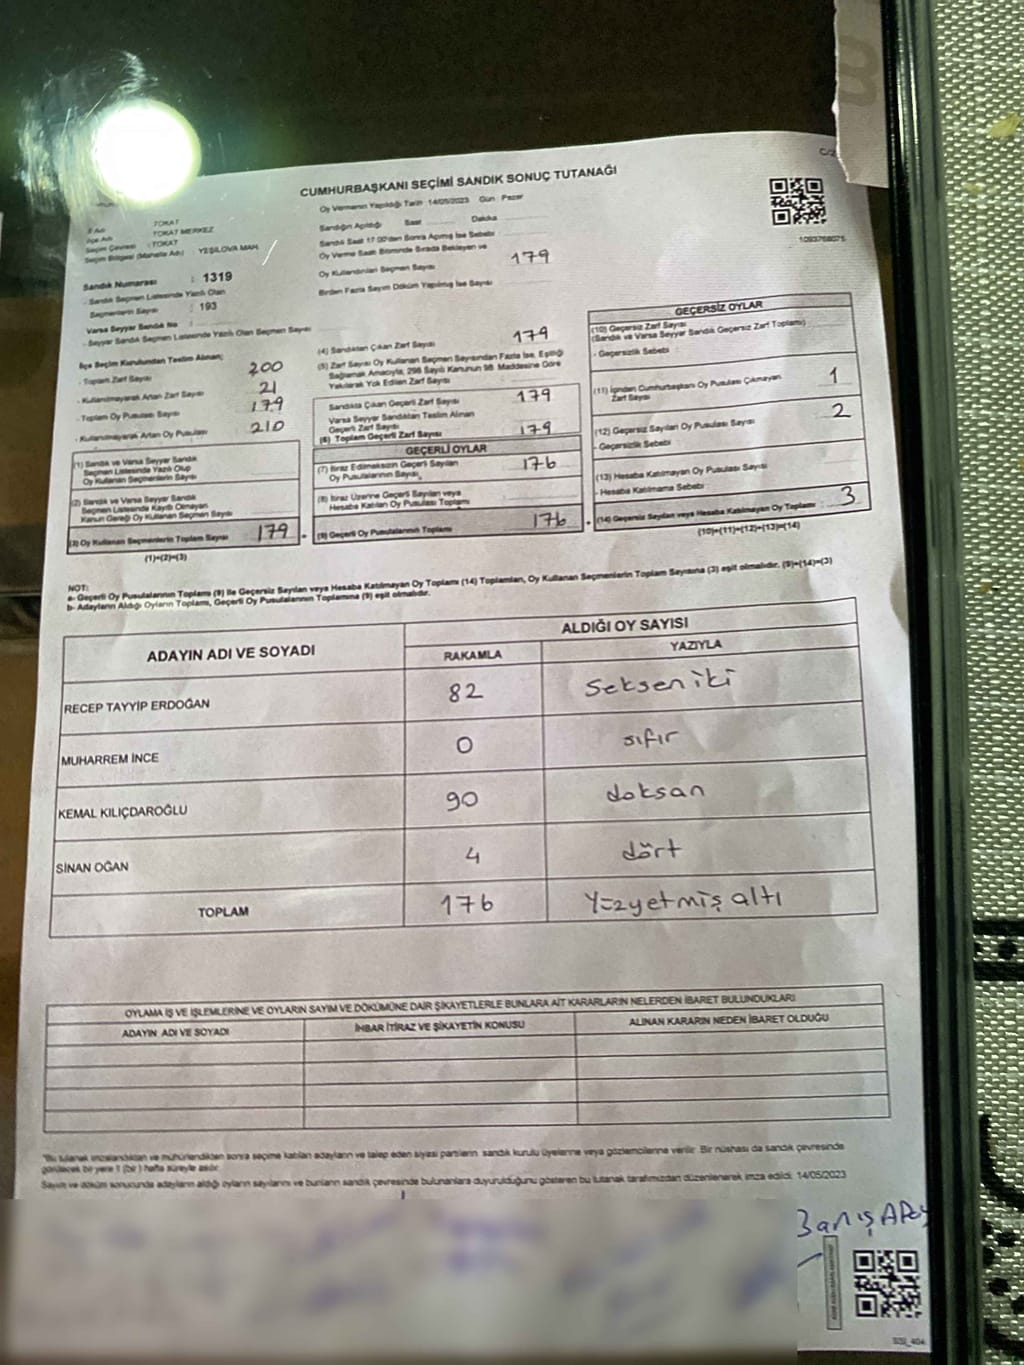 C/2
CUMHURBAŞKANI SEÇİMİ SANDIK SONUÇ TUTANAĞI
Oy Vermenin Yapıldığı Tarih 14/05/2023 Gün : Pazar
İl Adı : TOKAT
İlçe Adı : TOKAT MERKEZ
Seçim Çevresi : TOKAT
Seçim Bölgesi (Mahalle Adı) : YEŞİLOVA MAH.
Sandık Numarası : 1319
Sandık Seçmen Listesinde Yazılı Olan
Seçmenlerin Sayısı : 193
Varsa Seyyar Sandık No :
- Seyyar Sandık Seçmen Listesinde Yazılı Olan Seçmen Sayısı
Sandığın Açıldığı Saat Dakika
Sandık Saat 17.00'den Sonra Açılmış İse Sebebi :
Oy Verme Saati Bitiminde Sırada Bekleyen ve
Oy Kullandırılan Seçmen Sayısı 179
Birden Fazla Sayım Döküm Yapılmış İse Sayısı
1093768075
İlçe Seçim Kurulundan Teslim Alınan;
- Toplam Zarf Sayısı 200
- Kullanılmayarak Artan Zarf Sayısı 21
- Toplam Oy Pusulası Sayısı 179
- Kullanılmayarak Artan Oy Pusulası 210
(1) Sandık ve Varsa Seyyar Sandık
Seçmen Listesinde Yazılı Olup
Oy Kullanan Seçmenlerin Sayısı
(2) Sandık ve Varsa Seyyar Sandık
Seçmen Listesinde Kayıtlı Olmayan
Kanun Gereği Oy Kullanan Seçmen Sayısı
(3) Oy Kullanan Seçmenlerin Toplam Sayısı 179
(1)+(2)=(3)
(4) Sandıktan Çıkan Zarf Sayısı 179
(5) Zarf Sayısı Oy Kullanan Seçmen Sayısından Fazla İse, Eşitliği
Sağlamak Amacıyla, 298 Sayılı Kanunun 98. Maddesine Göre
Yakılarak Yok Edilen Zarf Sayısı
Sandıkta Çıkan Geçerli Zarf Sayısı 179
Varsa Seyyar Sandıktan Teslim Alınan
Geçerli Zarf Sayısı
(6) Toplam Geçerli Zarf Sayısı 179
GEÇERLİ OYLAR
(7) İtiraz Edilmeksizin Geçerli Sayılan
Oy Pusulalarının Sayısı 176
(8) İtiraz Üzerine Geçerli Sayılan veya
Hesaba Katılan Oy Pusulası Toplamı
(9) Geçerli Oy Pusulalarının Toplamı 176
GEÇERSİZ OYLAR
(10) Geçersiz Zarf Sayısı
(Sandık ve Varsa Seyyar Sandık Geçersiz Zarf Toplamı)
- Geçersizlik Sebebi
(11) İçinden Cumhurbaşkanı Oy Pusulası Çıkmayan
Zarf Sayısı 1
(12) Geçersiz Sayılan Oy Pusulası Sayısı 2
- Geçersizlik Sebebi
(13) Hesaba Katılmayan Oy Pusulası Sayısı
- Hesaba Katılmama Sebebi
(14) Geçersiz Sayılan veya Hesaba Katılmayan Oy Toplamı : 3
(10)+(11)+(12)+(13)=(14)
NOT:
a- Geçerli Oy Pusulalarının Toplamı (9) ile Geçersiz Sayılan veya Hesaba Katılmayan Oy Toplamı (14) Toplamları, Oy Kullanan Seçmenlerin Toplam Sayısına (3) eşit olmalıdır. (9)+(14)=(3)
b- Adayların Aldığı Oyların Toplamı, Geçerli Oy Pusulalarının Toplamına (9) eşit olmalıdır.
ADAYIN ADI VE SOYADI ALDIĞI OY SAYISI
RAKAMLA YAZIYLA
RECEP TAYYİP ERDOĞAN 82 Seksen iki
MUHARREM İNCE 0 sıfır
KEMAL KILIÇDAROĞLU 90 doksan
SİNAN OĞAN 4 dört
TOPLAM 176 Yüzyetmiş altı
OYLAMA İŞ VE İŞLEMLERİNE VE OYLARIN SAYIM VE DÖKÜMÜNE DAİR ŞİKAYETLERLE BUNLARA AİT KARARLARIN NELERDEN İBARET BULUNDUKLARI
ADAYIN ADI VE SOYADI İHBAR İTİRAZ VE ŞİKAYETİN KONUSU ALINAN KARARIN NEDEN İBARET OLDUĞU
*Bu tutanak imzalandıktan ve mühürlendikten sonra seçime katılan adayların ve talep eden siyasi partilerin sandık kurulu üyelerine veya gözlemcilerine verilir. Bir nüshası da sandık çevresinde
görülecek bir yere 1 (bir) hafta süreyle asılır.
Sayım ve döküm sonucunda adayların aldığı oyların sayılarını ve bunların sandık çevresinde bulunanlara duyurulduğunu gösteren bu tutanak tarafımızdan düzenlenerek imza edildi. 14/05/2023
Barış
SSİ_404